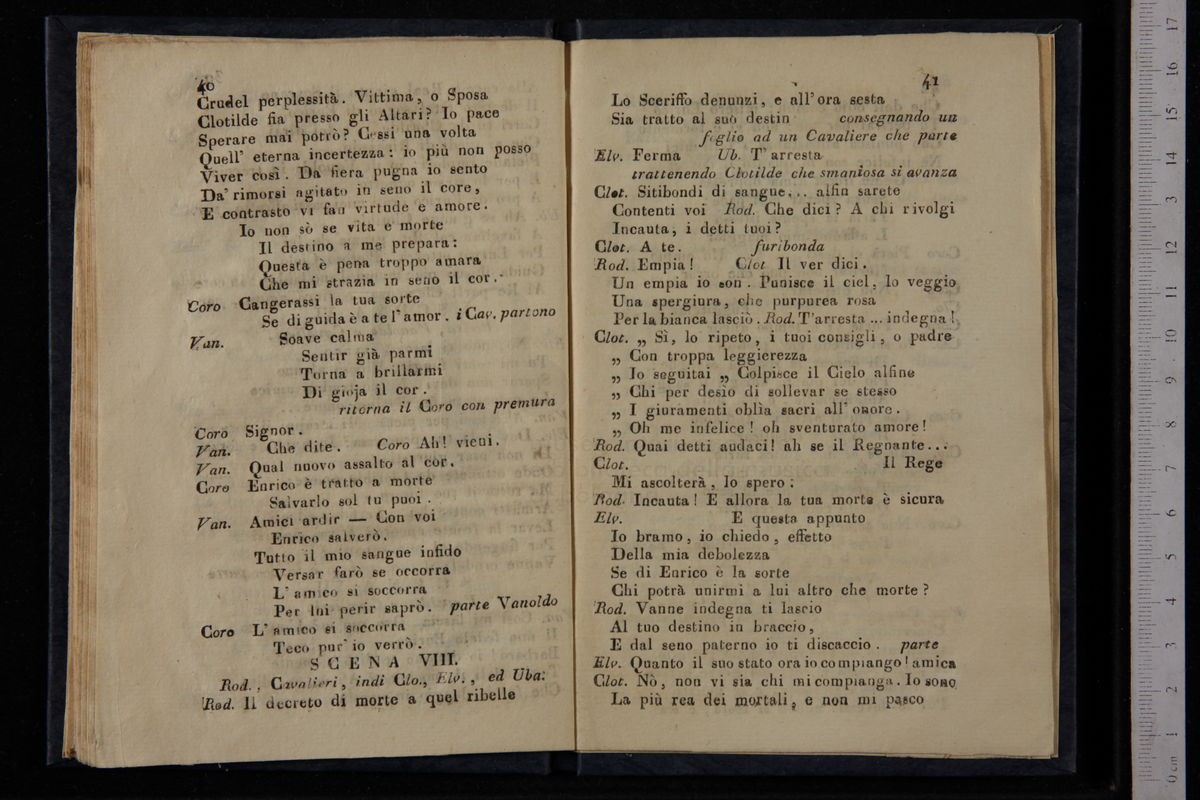 40
Crudel perplessità. Vittima, o Sposa
Clotilde fia presso gli Altari? Io pace
Sperare mai potrò? Cessi una volta
Quell' eterna incertezza: io più non posso
Viver così. Da fiera pugna io sento
Da' rimorsi agitato in seno il core,
E contrasto vi fan virtude e amore.
Io non sò se vita e morte
Il destino a me prepara:
Questa è pena troppo amara
Che mi strazia in seno il cor.
Coro Cangerassi la tua sorte
Se di guida è a te l'amor. i Cav. partono
Van. Soave calma
Sentir già parmi
Torna a brillarmi
Di gioja il cor.
ritorna il Coro con premura
Coro Signor.
Van. Che dite. Coro Ah! vieni.
Van. Qual nuovo assalto al cor.
Coro Enrico è tratto a morte
Salvarlo sol tu puoi.
Van. Amici ardir — Con voi
Enrico salverò.
Tutto il mio sangue infido
Versar farò se occorra
L'amico si soccorra
Per lui perir saprò. parte Vanoldo
Coro L'amico si soccorra
Teco pur' io verrò.
SCENA VIII.
Rod., Cavalieri, indi Clo., Elv., ed Uba.
Rod. Il decreto di morte a quel ribelle
41
Lo Sceriffo denunzi, e all'ora sesta
Sia tratto al suo destin consegnando un
foglio ad un Cavaliere che parte
Elv. Ferma Ub. T'arresta
trattenendo Clotilde che smaniosa si avanza
Clot. Sitibondi di sangue... alfin sarete
Contenti voi Rod. Che dici? A chi rivolgi
Incauta, i detti tuoi?
Clot. A te. furibonda
Rod. Empia! Clot Il ver dici.
Un empia io son. Punisce il ciel, lo veggio
Una spergiura, che purpurea rosa
Per la bianca lasciò. Rod. T'arresta ... indegna!
Clot. „ Sì, lo ripeto, i tuoi consigli, o padre
„ Con troppa leggierezza
„ Io seguitai „ Colpisce il Cielo alfine
„ Chi per desìo di sollevar se stesso
„ I giuramenti oblìa sacri all'onore.
„ Oh me infelice! oh sventurato amore!
Rod. Quai detti audaci! ah se il Regnante...
Clot. Il Rege
Mi ascolterà, lo spero:
Rod. Incauta! E allora la tua morte è sicura
Elv. E questa appunto
Io bramo, io chiedo, effetto
Della mia debolezza
Se di Enrico è la sorte
Chi potrà unirmi a lui altro che morte?
Rod. Vanne indegna ti lascio
Al tuo destino in braccio,
E dal seno paterno io ti discaccio. parte
Elv. Quanto il suo stato ora io compiango! amica
Clot. Nò, non vi sia chi mi compianga. Io sono
La più rea dei mortali, e non mi pasco
0 cm 1 2 3 4 5 6 7 8 9 10 11 12 13 14 15 16 17